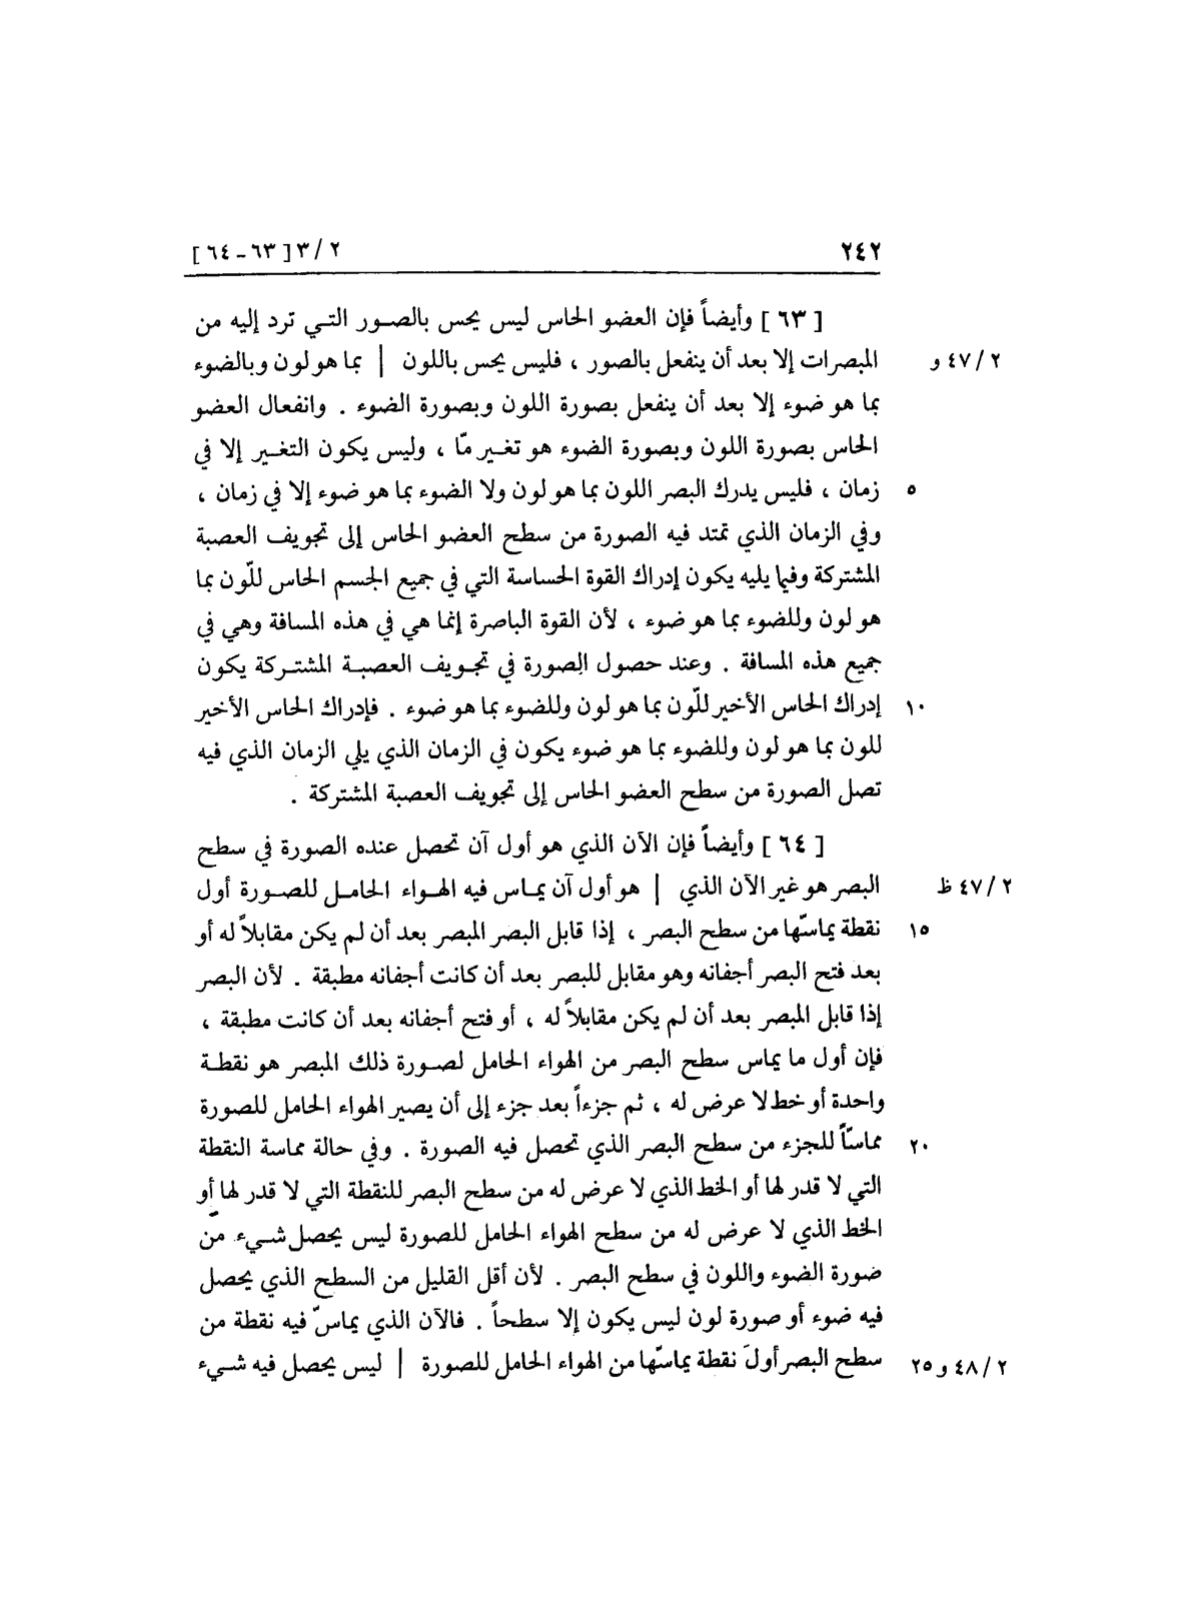 ٢٤٢ ٢/ ٣ [ ٦٣ - ٦٤ ]
[ ٦٣ ] وأيضاً فإن العضو الحاس ليس يحس بالصور التي ترد إليه من
٢/ ٤٧ و المبصرات إلا بعد أن ينفعل بالصور ، فليس يحس باللون | بما هو لون وبالضوء
بما هو ضوء إلا بعد أن ينفعل بصورة اللون وبصورة الضوء . وانفعال العضو
الحاس بصورة اللون وبصورة الضوء هو تغير مّا ، وليس يكون التغير إلا في
٥ زمان ، فليس يدرك البصر اللون بما هو لون ولا الضوء بما هو ضوء إلا في زمان ،
وفي الزمان الذي تمتد فيه الصورة من سطح العضو الحاس إلى تجويف العصبة
المشتركة وفيما يليه يكون إدراك القوة الحساسة التي في جميع الجسم الحاس للّون بما
هو لون وللضوء بما هو ضوء ، لأن القوة الباصرة إنما هي في هذه المسافة وهي في
جميع هذه المسافة . وعند حصول الصورة في تجويف العصبة المشتركة يكون
١٠ إدراك الحاس الأخير للّون بما هو لون وللضوء بما هو ضوء . فإدراك الحاس الأخير
للون بما هو لون وللضوء بما هو ضوء يكون في الزمان الذي يلي الزمان الذي فيه
تصل الصورة من سطح العضو الحاس إلى تجويف العصبة المشتركة .
[ ٦٤ ] وأيضاً فإن الآن الذي هو أول آن تحصل عنده الصورة في سطح
٢/ ٤٧ ظ البصر هو غير الآن الذي | هو أول آن يماس فيه الهواء الحامل للصورة أول
١٥ نقطة يماسّها من سطح البصر ، إذا قابل البصر المبصر بعد أن لم يكن مقابلاً له أو
بعد فتح البصر أجفانه وهو مقابل للبصر بعد أن كانت أجفانه مطبقة . لأن البصر
إذا قابل المبصر بعد أن لم يكن مقابلاً له ، أو فتح أجفانه بعد أن كانت مطبقة ،
فإن أول ما يماس سطح البصر من الهواء الحامل لصورة ذلك المبصر هو نقطة
واحدة أو خط لا عرض له ، ثم جزءاً بعد جزء إلى أن يصير الهواء الحامل للصورة
٢٠ مماسّاً للجزء من سطح البصر الذي تحصل فيه الصورة . وفي حالة مماسة النقطة
التي لا قدر لها أو الخط الذي لا عرض له من سطح البصر للنقطة التي لا قدر لها أو
الخط الذي لا عرض له من سطح الهواء الحامل للصورة ليس يحصل شيء من
صورة الضوء واللون في سطح البصر . لأن أقل القليل من السطح الذي يحصل
فيه ضوء أو صورة لون ليس يكون إلا سطحاً . فالآن الذي يماسّ فيه نقطة من
٢/ ٤٨ و ٢٥ سطح البصر أولَ نقطة يماسّها من الهواء الحامل للصورة | ليس يحصل فيه شيء